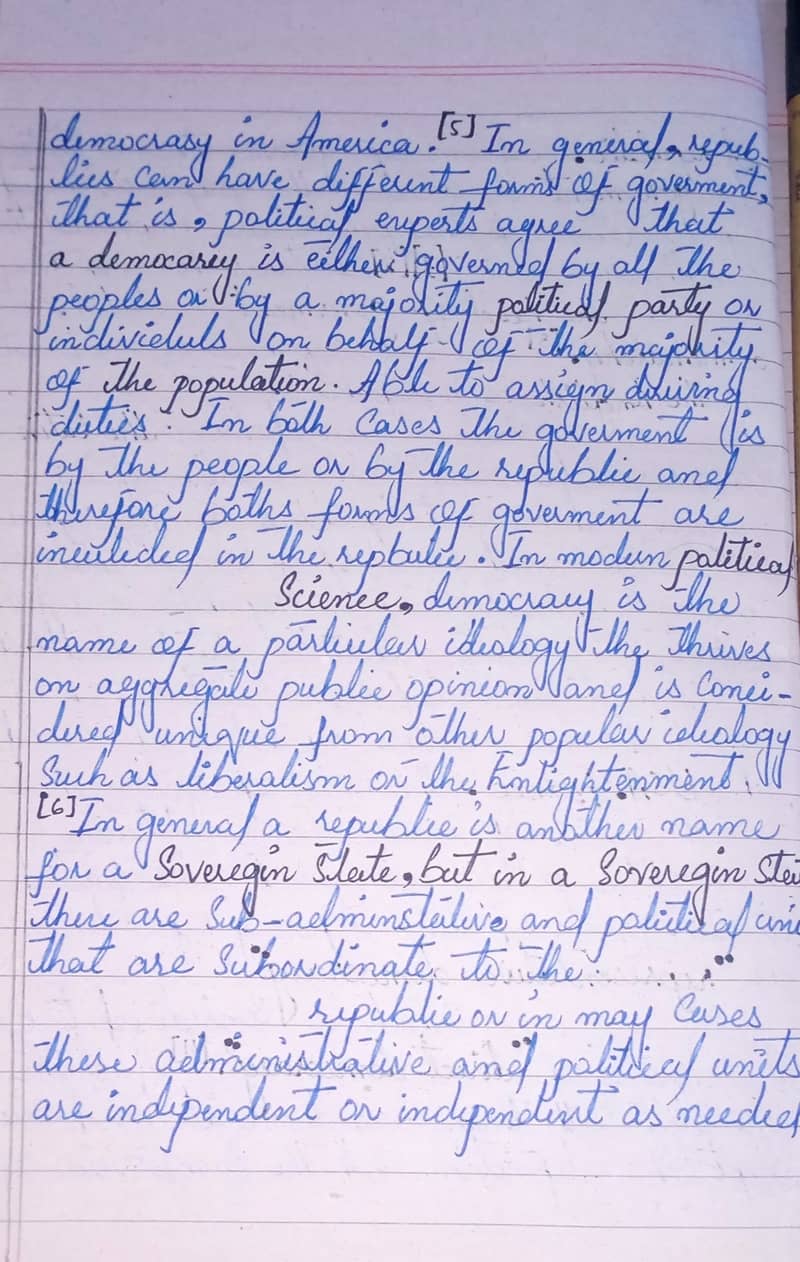 democrasy in America.[5] In general, repub-
lics can have different forms of goverment,
that is, political experts agree that
a democarey is either governed by all the
peoples or by a majority political party or
individuls on behalf of the majority
of the population. Able to assign
duties. In both Cases The goverment is
by the people or by the republic and
therefore boths forms of goverment are
inculded in the repbulic. In modern political
Science, democracy is the
name of a particular ideology the thrives
on aggregate public opinion and is Consi-
dered unique from other popular ideology
Such as liberalism or the Enlightenment.
[6] In general a republic is another name
for a Soveregin State, but in a Soveregin
there are Sub-adminstative and political
that are Subordinate to the
republic or in may Cases
these administrative and political units
are independent or independent as needed